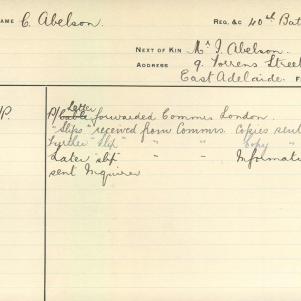 AME C. Abelson. REG. &C 40th Bat
NEXT OF KIN Mr J. Abelson.
ADDRESS 9. Torrens Street
East Adelaide. F
/P. P/ Letter cable forwarded Commrs London.
"Slips" received from Commrs. Copies sent
Further "slip" " " Copy "
Later "slip" " Informati
sent Inquirer